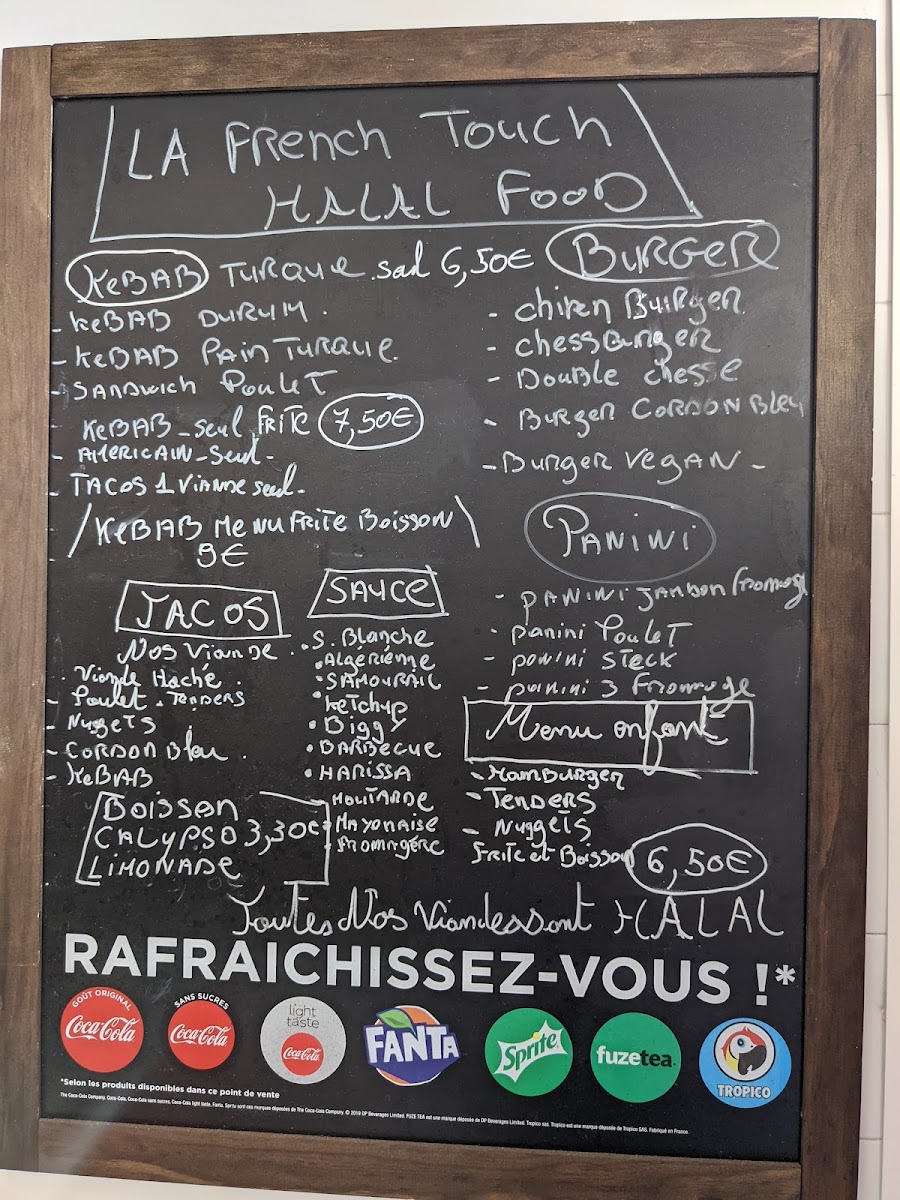 LA French Touch
HALAL FOOD
KeBAB TURQUE seul 6,50€
- KeBAB DURUM.
- KeBAB PAIN TURQUE.
- SANDWICH POULET
KeBAB_seul FRITE 7,50€
- AMERICAIN_seul-
- TACOS 1 VIANDE seul-
/KeBAB MENU FRITE BOISSON\
9€
BURGER
- Chiken BURGER
- ChessBURGER
- DOUBLE chesse
- BURGER CORDON Bleu
- BURGER VEGAN -
PANINI
- PANINI JANBON fromage
- panini POULET
- panini STeCK
- panini 3 Fromage
TACOS
Nos Viande
. Viande Haché
- Poulet. TENDERS
- NuggeTS
- CORDON Bleu.
- KeBAB
SAUCE
. S. Blanche
. Algérienne
. SAMOURAIL
ketchup
. Biggy
. BARBECUE
. HARISSA
- MOUTARDE
- MAYONAISE
- FROMAGÉRE
Menu enfant
- HAMBURGER
- TENDERS
- NuggeTS
Frite et Boisson 6,50€
BOISSON
CALYPSO 3,30€
LIMONADE
Toutes Nos Viandes sont HALAL
RAFRAICHISSEZ-VOUS !*
GOÛT ORIGINAL
Coca-Cola
SANS SUCRES
Coca-Cola
light taste
Coca-Cola
FANTA
Sprite
fuzetea
TROPICO
*Selon les produits disponibles dans ce point de vente
The Coca-Cola Company. Coca-Cola, Coca-Cola sans sucres, Coca-Cola light taste, Fanta, Sprite sont des marques déposées de The Coca-Cola Company. © 2019 DP Beverages Limited. FUZE TEA est une marque déposée de DP Beverages Limited. Tropico sas. Tropico est une marque déposée de Tropico SAS. Fabriqué en France.